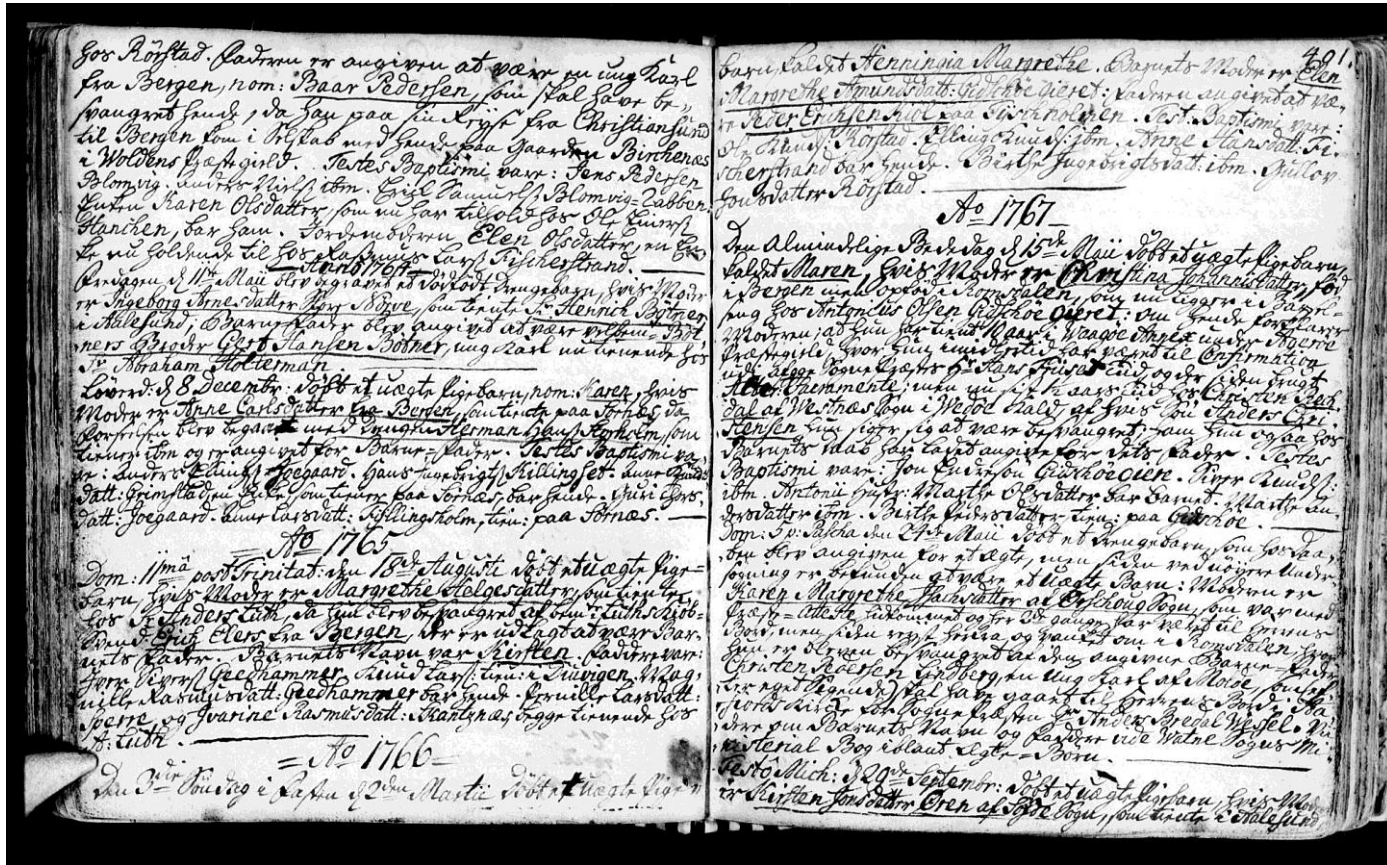 hos Rörstad. Faderen er angiven at være en ung Karl
fra Bergen, nom: Baar Pedersen, som skal have be-
svangret hende, da han paa sin Reyse fra Christiansund
til Bergen kom i Selskab med hende paa Gaarden Birchenæs
i Woldens Præstegield. Testes Baptismi vare: Jens Pedersen
Blomvig. Anders Niels: ibm. Erich Samuels: Blomvig-Labben.
Enken Karen Olsdatter, som nu har tilhold hos Ole
bar ham. Jordemoderen Elen Olsdatter, en En-
ke nu holdende til hos Rasmus Lars: Fischerstrand.
Anno 1764
Fredagen d 11te Maii blev begravet et dödfödt Drengebarn, hvis Moder
er Ingeborg Arnesdatter Nörve, som tiente Sr Henrich Bötner
i Aalesund; Barnefader blev angivet at være velbemte Böt-
ners Broder Gert Hansen Bötner, ung Karl nu tienende hos
Sr Abraham Holterman.
Löverd: d 8 Decembr: döbt et uægte Pigebarn, nom: Karen, hvis
Moder er Anne Carlsdatter fra Bergen, som tiente paa Tornæs, da
Forseelsen blev begaaet med Drengen Herman Hans: som
tiener ibm og er angivet for Barne-Fader. Testes Baptismi va-
re: Anders Joegaard. Hans Ingebrigts: Killingset. Anne
datt: Grimstad, en Enke som tiener paa Tornæs, bar hende. Guri
datt: Joegaard. Anne Larsdatt: Killingsholm, tien: paa Tornæs.
= Ao 1765
Dom: 11ma post Trinitat: den 18de Augusti döbt et uægte Pige-
barn, hvis Moder er Margrethe Helgesdatter, som tiente
hos Sr Anders Luth, da hun blev besvangret af bemte Luths Kiöb-
Svend Erich Elers fra Bergen, der er udlagt at være Bar-
nets Fader. Barnets Navn var Kirsten. Faddere vare:
Iver Sivers: Geedhammer. Knud Lars: tien: i Mag-
nille Rasmusdatt: Geedhammer bar hende. Pernille Larsdatt:
Sperre, og Ivarine Rasmusdatt: begge tienende hos
A: Luth.
= Ao 1766 =
Den 3die Söndag i Fasten d 2den Martii döbt et uægte Pige-
401.
barn, kaldet Henningia Margrethe. Barnets Moder er Elen
Margrethe Amundsdatt: Gidschöe Öieret: Faderen angivet at væ-
re Peder Erichsen paa Fischholmen. Test: Baptismi vare:
Ole Knuds: Rörstad. Elling Knuds: ibm. Anne Hansdatt: Fi-
scherstrand bar hende. Birthe Ingebrigtsdatt: ibm. Gullov
Jonsdatter Rörstad.
Ao 1767
Den Almindelige Bededag d 15de Maii döbt et uægte Pigebarn,
kaldet Maren, hvis Moder er Christina Johannisdatter, föd
i Bergen men opföd i Romsdalen, som nu ligger i Barsel-
seng hos Antonius Olsen Gidschöe Öieret: om hende forklarer
Moderen; at hun har tient 10 aar i Waagöe Annex under Ageröe
Præstegield, hvor hun imidlertid har været til Confirmation
udi Sogne Præstes Hr Hans Friises tiid, og der siden brugt
Alterets Sacramente; men nu sidst 1/2 aars tiid hos Christen
dal af Westnæs Sogn i Wedöe Kald, af hvis Sön Anders Chri-
stensen hun siger sig at være besvangret: ham hun og paa hos
Barnets daab har ladet angive for dets Fader. Testes
Baptismi vare: Jon Endresön Gidschöe Öien. Siver Knuds:
ibm. Antonii Hustr: Marthe Olsdatter bar barnet. Marthe An-
dersdatter ibm. Birthe Pedersdatter tien: paa Gidschöe.
Dom: 5 p: Pascha den 24de Maii döbt et Drengebarn, som hos Daa-
ben blev angiven for et ægte, men siden ved nöyere Under-
sögning er befunden at være et uægte Barn: Moderen er
Karen Margrethe Zachrisdatter af Örschoug Sogn, som var med
Præste-Atteste hidkommet og her 2de gange har været til Herrens
Bord, men siden reyst herfra og vanket om i Romsdalen, hvor
hun er bleven besvangret af den angivne Barne-Fader
Christen Pedersen Lindberg, en ung Karl af Molde, som ef-
ter eget Sigende skal have gaaet til Herrens Bord i
fiords Kirke for Sognepræsten Hr Anders Bredal Wessel. Vi-
dere om Barnets Navn og Faddere vide Vatne Sogns Mi-
nisterial Bog iblant Ægte-Börn.
Festô Mich: d 29de Septembr: döbt et uægte Pigebarn, hvis Moder
er Kirsten Jonsdatter Ören af Sogn, som tiente i Aalesund,